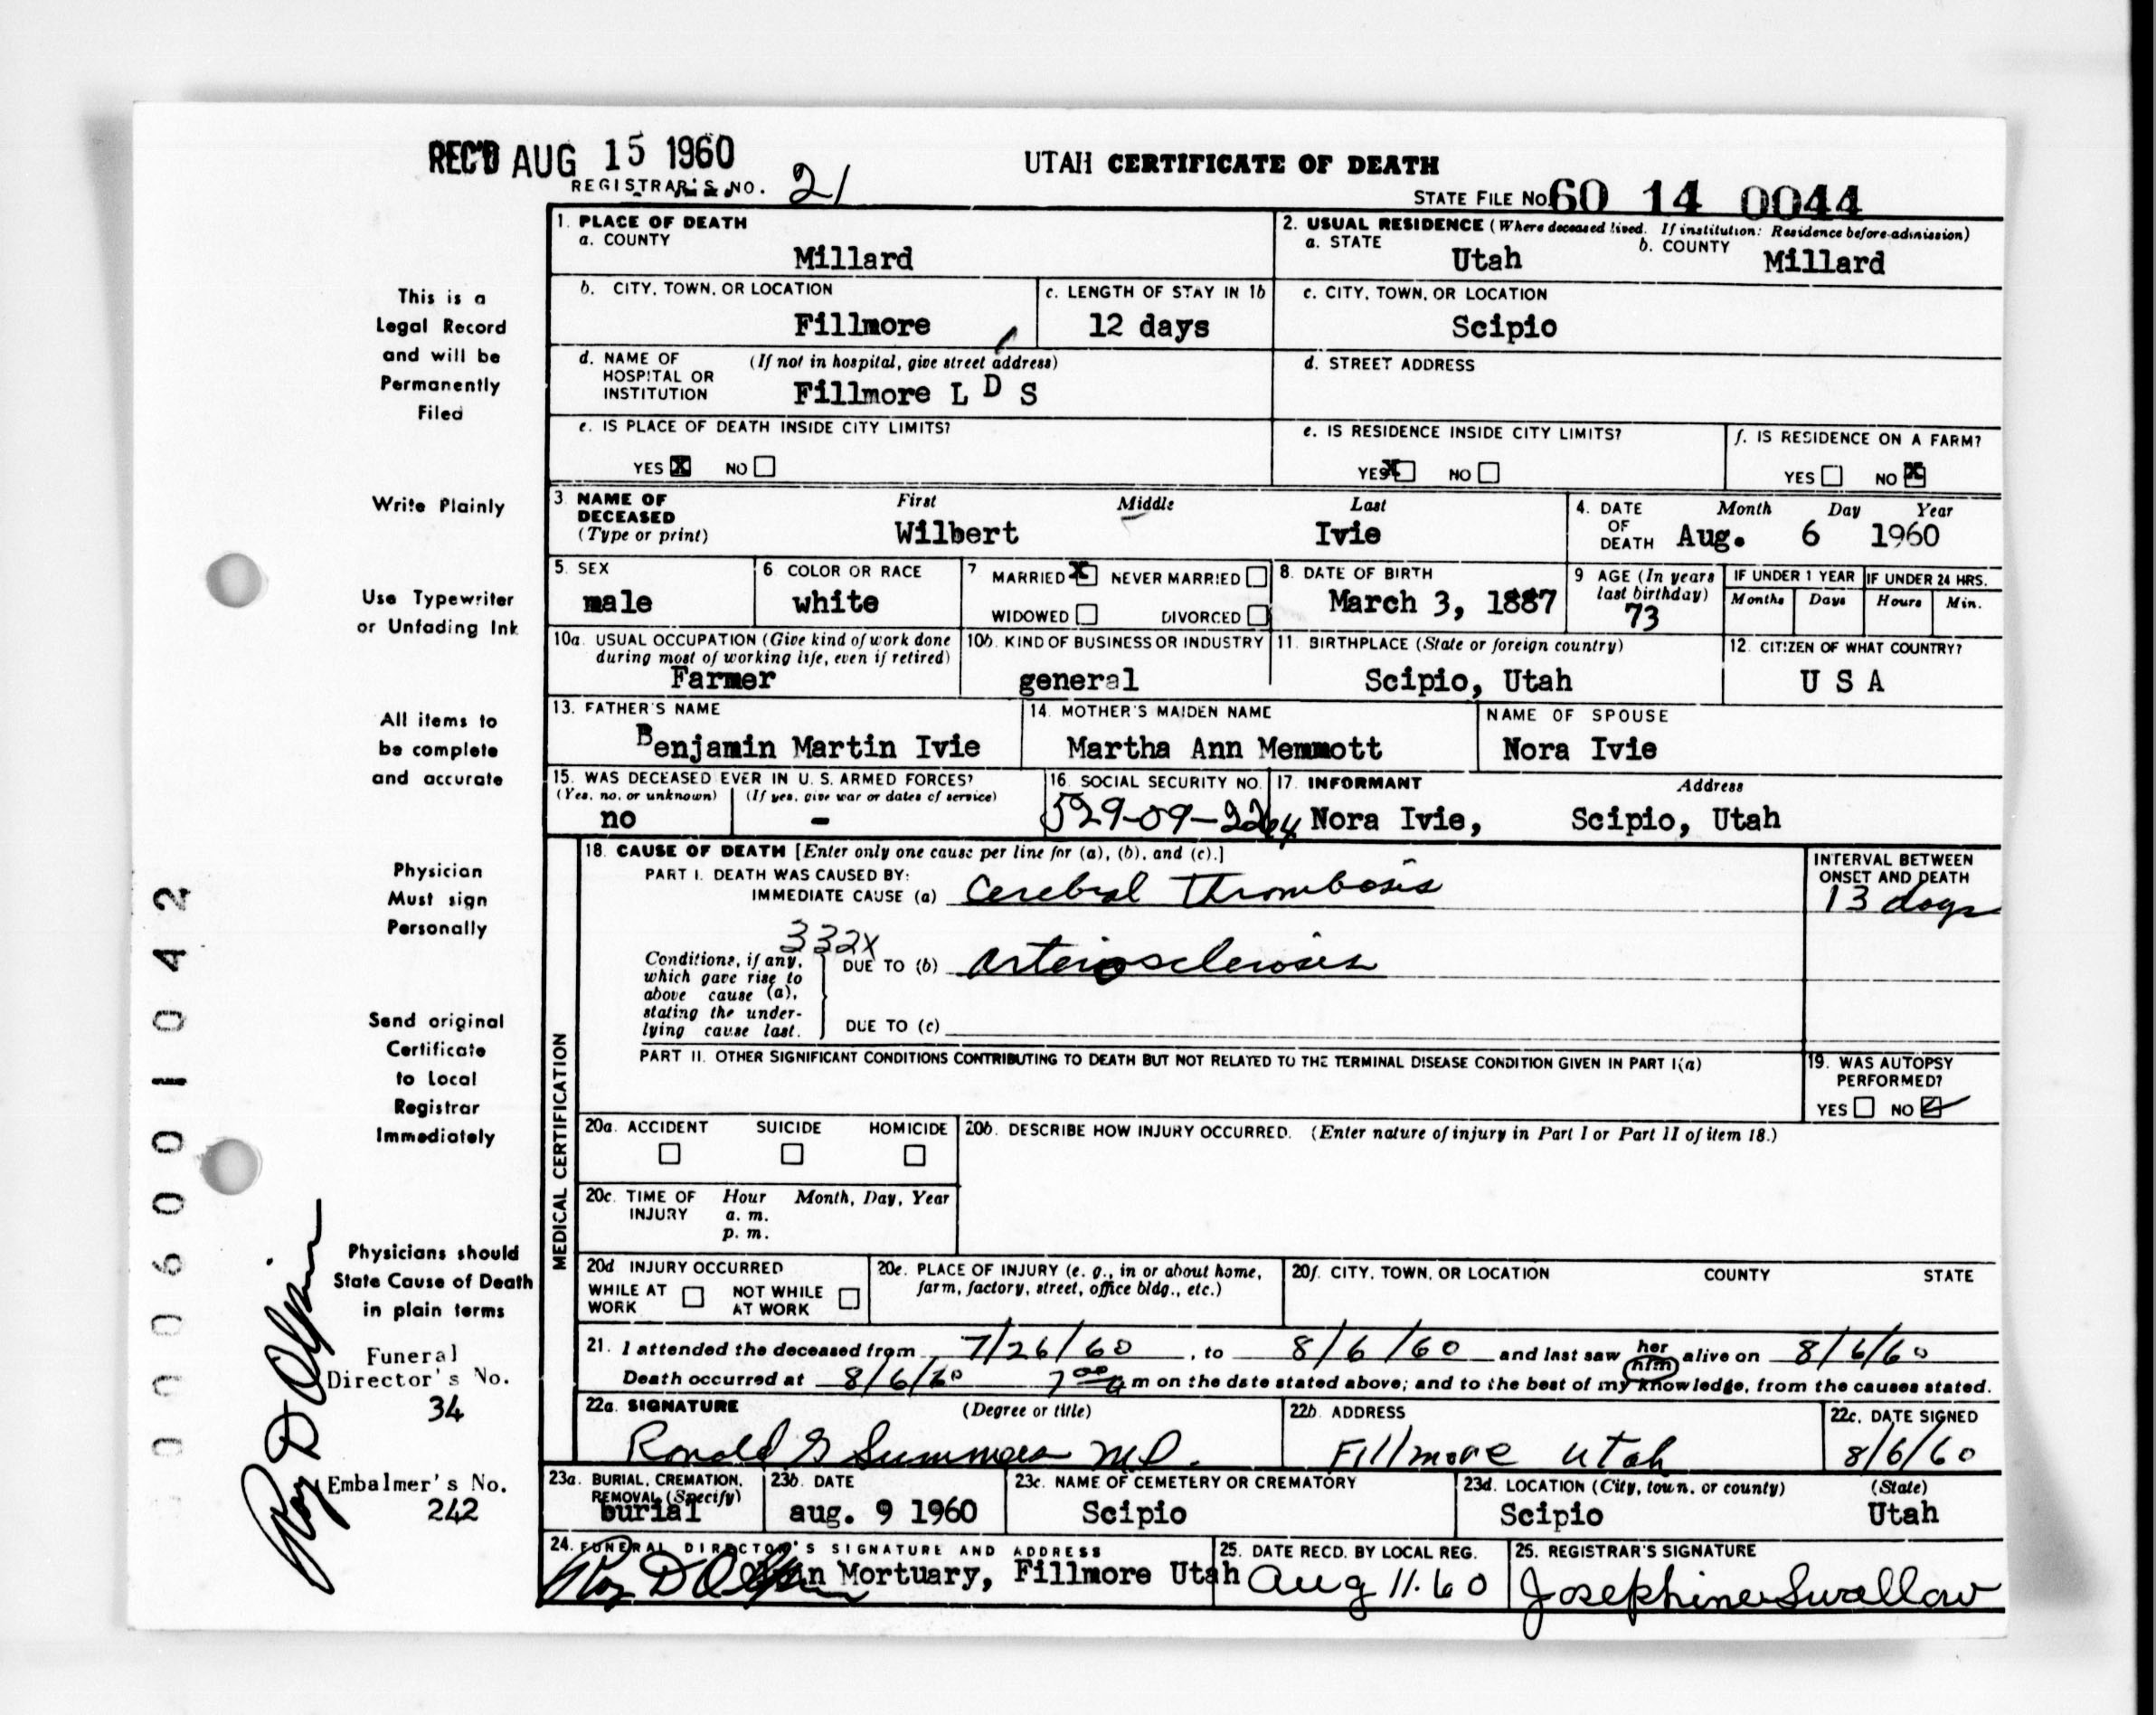 REC'D AUG 15 1960
REGISTRAR'S NO. 21
UTAH CERTIFICATE OF DEATH
STATE FILE NO. 60 14 0044
This is a
Legal Record
and will be
Permanently
Filed
Write Plainly
Use Typewriter
or Unfading Ink
All items to
be complete
and accurate
Physician
Must sign
Personally
Send original
Certificate
to Local
Registrar
Immediately
Physicians should
State Cause of Death
in plain terms
Funeral
Director's No.
34
Embalmer's No.
242
Roy D Olpin
0006001042
1. PLACE OF DEATH
a. COUNTY
Millard
2. USUAL RESIDENCE (Where deceased lived. If institution: Residence before admission)
a. STATE Utah b. COUNTY Millard
b. CITY, TOWN, OR LOCATION
Fillmore
c. LENGTH OF STAY IN 1b
12 days
c. CITY, TOWN, OR LOCATION
Scipio
d. NAME OF HOSPITAL OR INSTITUTION (If not in hospital, give street address)
Fillmore L D S
d. STREET ADDRESS
e. IS PLACE OF DEATH INSIDE CITY LIMITS?
YES X NO
e. IS RESIDENCE INSIDE CITY LIMITS?
YES X NO
f. IS RESIDENCE ON A FARM?
YES NO X
3. NAME OF DECEASED (Type or print)
First Middle Last
Wilbert Ivie
4. DATE OF DEATH Month Day Year
Aug. 6 1960
5. SEX
male
6 COLOR OR RACE
white
7 MARRIED X NEVER MARRIED
WIDOWED DIVORCED
8. DATE OF BIRTH
March 3, 1887
9 AGE (In years last birthday)
73
IF UNDER 1 YEAR IF UNDER 24 HRS.
Months Days Hours Min.
10a. USUAL OCCUPATION (Give kind of work done during most of working life, even if retired)
Farmer
10b. KIND OF BUSINESS OR INDUSTRY
general
11. BIRTHPLACE (State or foreign country)
Scipio, Utah
12. CITIZEN OF WHAT COUNTRY?
U S A
13. FATHER'S NAME
Benjamin Martin Ivie
14. MOTHER'S MAIDEN NAME
Martha Ann Memmott
NAME OF SPOUSE
Nora Ivie
15. WAS DECEASED EVER IN U. S. ARMED FORCES?
(Yes, no, or unknown) (If yes, give war or dates of service)
no -
16. SOCIAL SECURITY NO.
529-09-2264
17. INFORMANT Address
Nora Ivie, Scipio, Utah
MEDICAL CERTIFICATION
18. CAUSE OF DEATH [Enter only one cause per line for (a), (b), and (c).]
PART I. DEATH WAS CAUSED BY:
IMMEDIATE CAUSE (a) Cerebral Thrombosis
INTERVAL BETWEEN
ONSET AND DEATH
13 days
332X
Conditions, if any,
which gave rise to
above cause (a),
stating the under-
lying cause last.
DUE TO (b) arteriosclerosis
DUE TO (c)
PART II. OTHER SIGNIFICANT CONDITIONS CONTRIBUTING TO DEATH BUT NOT RELATED TO THE TERMINAL DISEASE CONDITION GIVEN IN PART I(a)
19. WAS AUTOPSY
PERFORMED?
YES NO ✓
20a. ACCIDENT SUICIDE HOMICIDE
20b. DESCRIBE HOW INJURY OCCURRED. (Enter nature of injury in Part I or Part II of item 18.)
20c. TIME OF INJURY Hour Month, Day, Year
a. m.
p. m.
20d INJURY OCCURRED
WHILE AT WORK NOT WHILE AT WORK
20e. PLACE OF INJURY (e. g., in or about home,
farm, factory, street, office bldg., etc.)
20f. CITY, TOWN, OR LOCATION COUNTY STATE
21. I attended the deceased from 7/26/60, to 8/6/60 and last saw her him alive on 8/6/60
Death occurred at 8/6/60 7 00 a m on the date stated above; and to the best of my knowledge, from the causes stated.
22a. SIGNATURE (Degree or title)
Ronald G Summers M.D.
22b. ADDRESS
Fillmore Utah
22c. DATE SIGNED
8/6/60
23a. BURIAL, CREMATION,
REMOVAL (Specify)
burial
23b. DATE
aug. 9 1960
23c. NAME OF CEMETERY OR CREMATORY
Scipio
23d. LOCATION (City, town, or county) (State)
Scipio Utah
24. FUNERAL DIRECTOR'S SIGNATURE AND ADDRESS
Roy D Olpin Mortuary, Fillmore Utah
25. DATE RECD. BY LOCAL REG.
Aug 11. 60
25. REGISTRAR'S SIGNATURE
Josephine Swallow